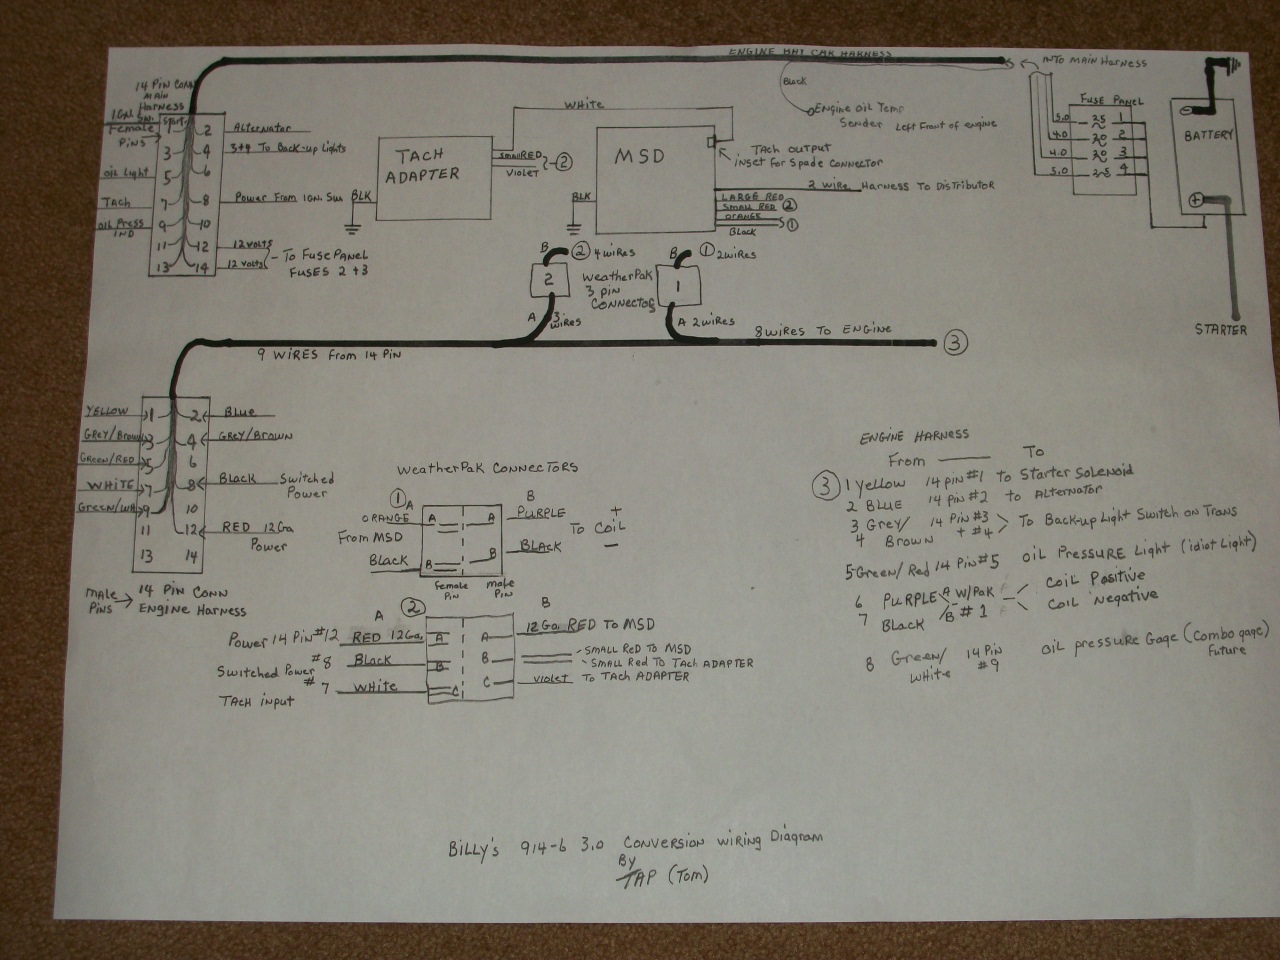 ENGINE BAY CAR HARNESS
INTO MAIN HARNESS
14 PIN CONN
MAIN
HARNESS
IGN. SW.
START
Female
PINS
1
2
Alternator
3
4
3+4 To Back-up Lights
OIL Light
5
6
TACH
7
8
Power From IGN. Sw
OIL PRESS
IND
9
10
11
12
12 VOLTS
13
14
12 VOLTS
To Fuse Panel
FUSES 2 + 3
WHITE
TACH
ADAPTER
Small RED
VIOLET
2
BLK
MSD
BLK
TACH OUTPUT
INSET FOR SPADE CONNECTOR
2 WIRE HARNESS TO DISTRIBUTOR
LARGE RED
SMALL RED 2
ORANGE
Black
1
Black
ENGINE OIL TEMP
Sender Left Front of engine
Fuse Panel
5.0 25 1
4.0 20 2
4.0 20 3
5.0 25 4
BATTERY
-
+
STARTER
B 2 4 wires
2
A 3
wires
WEATHERPAK
3 PIN
CONNECTORS
B 1 2 wires
1
A 2 WIRES
8 WIRES TO ENGINE
3
9 WIRES From 14 PIN
YELLOW 1 2 Blue
GREY/Brown 3 4 GREY/BROWN
Green/RED 5 6
WHITE 7 8 BLACK Switched
Power
Green/WH 9 10
11 12 RED 12 Ga
Power
13 14
MALE
PINS
14 PIN CONN
ENGINE HARNESS
WEATHERPAK CONNECTORS
1
A
B
ORANGE
A A
PURPLE +
From MSD
TO COIL
Black
B B
BLACK -
Female
PIN
MALE
PIN
A
2
B
Power 14 PIN #12 RED 12Ga. A A 12 Ga. RED TO MSD
Switched Power #8 Black B B SMALL RED TO MSD
Small Red To TACH ADAPTER
TACH INPUT # 7 WHITE C C VIOLET To TACH ADAPTER
ENGINE HARNESS
From To
3
1 Yellow 14 pin #1 to Starter Solenoid
2 BLUE 14 PIN #2 to ALTERNATOR
3 Grey/ 14 PIN #3
4 Brown + #4
To Back-up Light Switch on Trans
5 Green/Red 14 PIN #5 OIL PRESSURE Light (idiot Light)
6 PURPLE A W/PAK COIL POSITIVE
7 Black /B # 1 COIL Negative
8 Green/ 14 PIN OIL pressure Gage (Combo gage)
WHITE #9 Future
BILLY'S 914-6 3.0 CONVERSION WIRING Diagram
By
TAP (Tom)